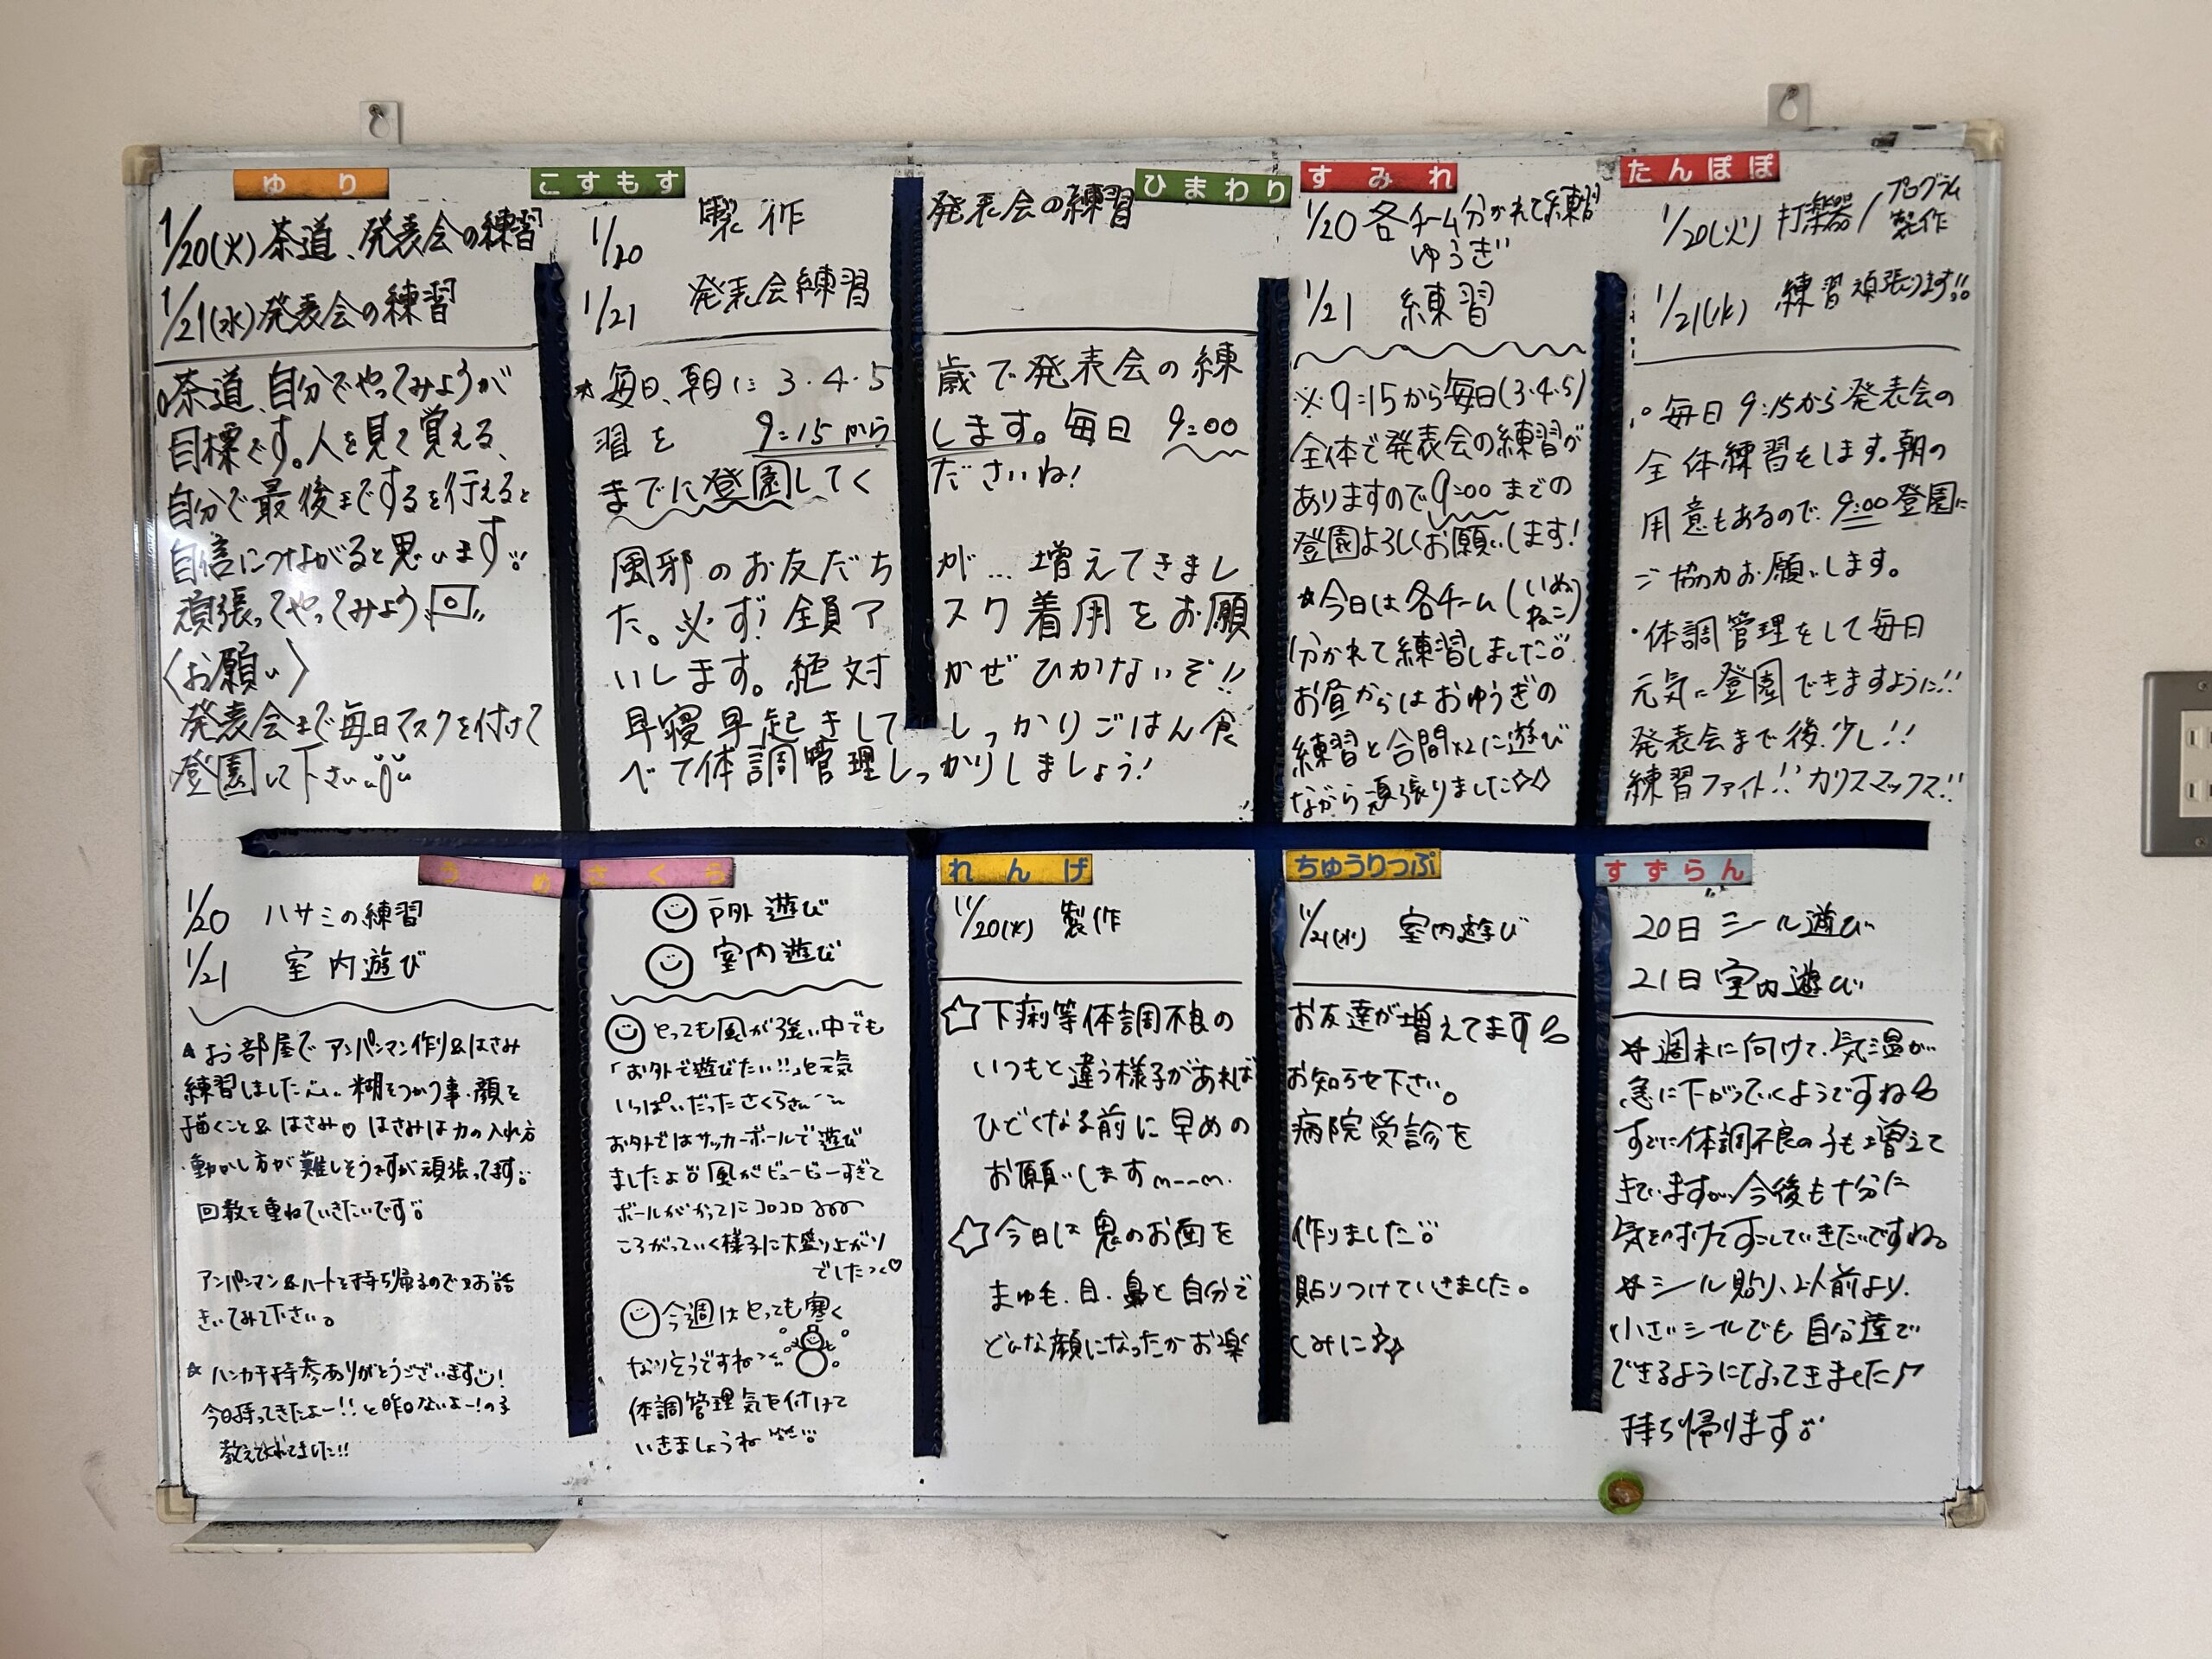 ゆり
1/20(火)茶道、発表会の練習
1/21(水)発表会の練習
○茶道、自分でやってみようが
目標です。人を見て覚える、
自分で最後までするを行えると
自信につながると思います
頑張ってやってみよう
〈お願い〉
発表会まで毎日マスクを付けて
登園して下さい
こすもす
ひまわり
1/20 製作 発表会の練習
1/21 発表会練習
*毎日、朝に3・4・5歳で発表会の練
習を 9:15からします。毎日 9:00
までに登園してくださいね!
風邪のお友だちが…増えてきまし
た。必ず!全員マスク着用をお願
いします。絶対かぜひかないぞ!!
早寝早起きしてしっかりごはん食
べて体調管理しっかりしましょう!
すみれ
1/20 各チーム分かれて練習
ゆうぎ
1/21 練習
※9:15から毎日(3・4・5)
全体で発表会の練習が
ありますので9:00までの
登園よろしくお願いします!
☆今日は各チーム(いぬ ねこ)
分かれて練習しました
お昼からはおゆうぎの
練習と合間×2に遊び
ながら頑張りました☆☆
たんぽぽ
1/20(火) 打楽器/プログラム
製作
1/21(水) 練習頑張ります!!
・毎日9:15から発表会の
全体練習をします。朝の
用意もあるので、9:00登園に
ご協力お願いします。
・体調管理をして毎日
元気に登園できますように!!
発表会まで後少し!!
練習ファイト!!カリスマックス!!
うめ
1/20 ハサミの練習
1/21 室内遊び
お部屋でアンパンマン作り&はさみ
練習しました 糊をつかう事・顔を
描くこと&はさみ♡はさみは力の入れ方
動かし方が難しそうですが頑張ってます
回数を重ねていきたいです
アンパンマン&ハートを持ち帰るので×お話
きいてみて下さい。
☆ハンカチ持参ありがとうございます!
今日持ってきたよー!!と昨日ないよー!の子
教えてくれてました!!
さくら
戸外遊び
室内遊び
とっても風が強い中でも
「お外で遊びたい!!」と元気
いっぱいだったさくらさん
お外ではサッカーボールで遊び
ましたよ 風がビュービューすぎて
ボールがかってにコロコロ
ころがっていく様子に大盛り上がり
でした♡
今週はとっても寒く
なりそうですね
体調管理気を付けて
いきましょうね
れんげ
ちゅうりっぷ
1/20(火) 製作
1/21(水) 室内遊び
☆下痢等体調不良のお友達が増えてます
いつもと違う様子があればお知らせ下さい。
ひどくなる前に早めの病院受診を
お願いしますm--m
☆今日は鬼のお面を作りました
まゆ毛、目、鼻と自分で貼りつけていきました。
どんな顔になったかお楽しみに☆
すずらん
20日 シール遊び
21日 室内遊び
☆週末に向けて、気温が
急に下がっていくようですね
すでに体調不良の子も増えて
きていますが、今後も十分に
気を付けてすごしていきたいですね。
☆シール貼り、以前より、
小さいシールでも自分達で
できるようになってきました♪
持ち帰ります